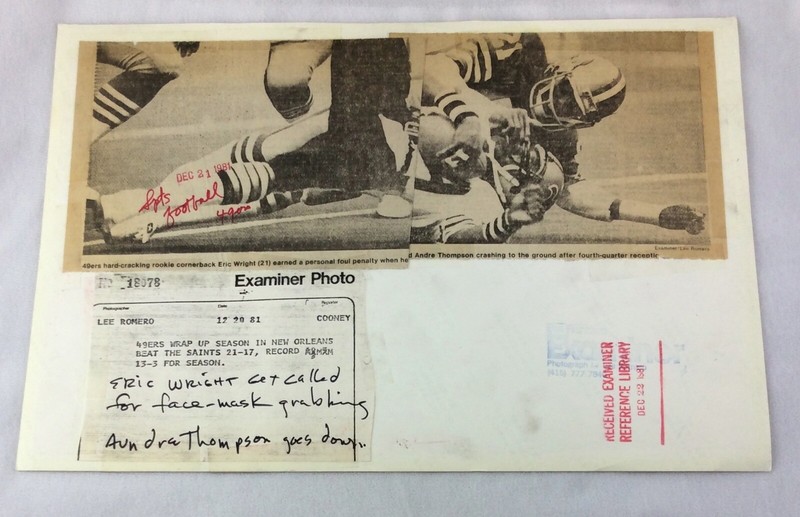 DEC 21 1981
Spts
football
49ers
Examiner/Lee Romero
49ers hard-cracking rookie cornerback Eric Wright (21) earned a personal foul penalty when he
d Andre Thompson crashing to the ground after fourth-quarter receptic
No 18078
Examiner Photo
Photographer Date Reporter
LEE ROMERO 12 20 81 COONEY
49ERS WRAP UP SEASON IN NEW ORLEANS
BEAT THE SAINTS 21-17, RECORD
13-3 FOR SEASON.
ERIC WRIGHT Get Called
for face-mask grabbing
Aundra Thompson goes down.
Examiner
Photograph by
RECEIVED EXAMINER
REFERENCE LIBRARY
DEC 22 1981